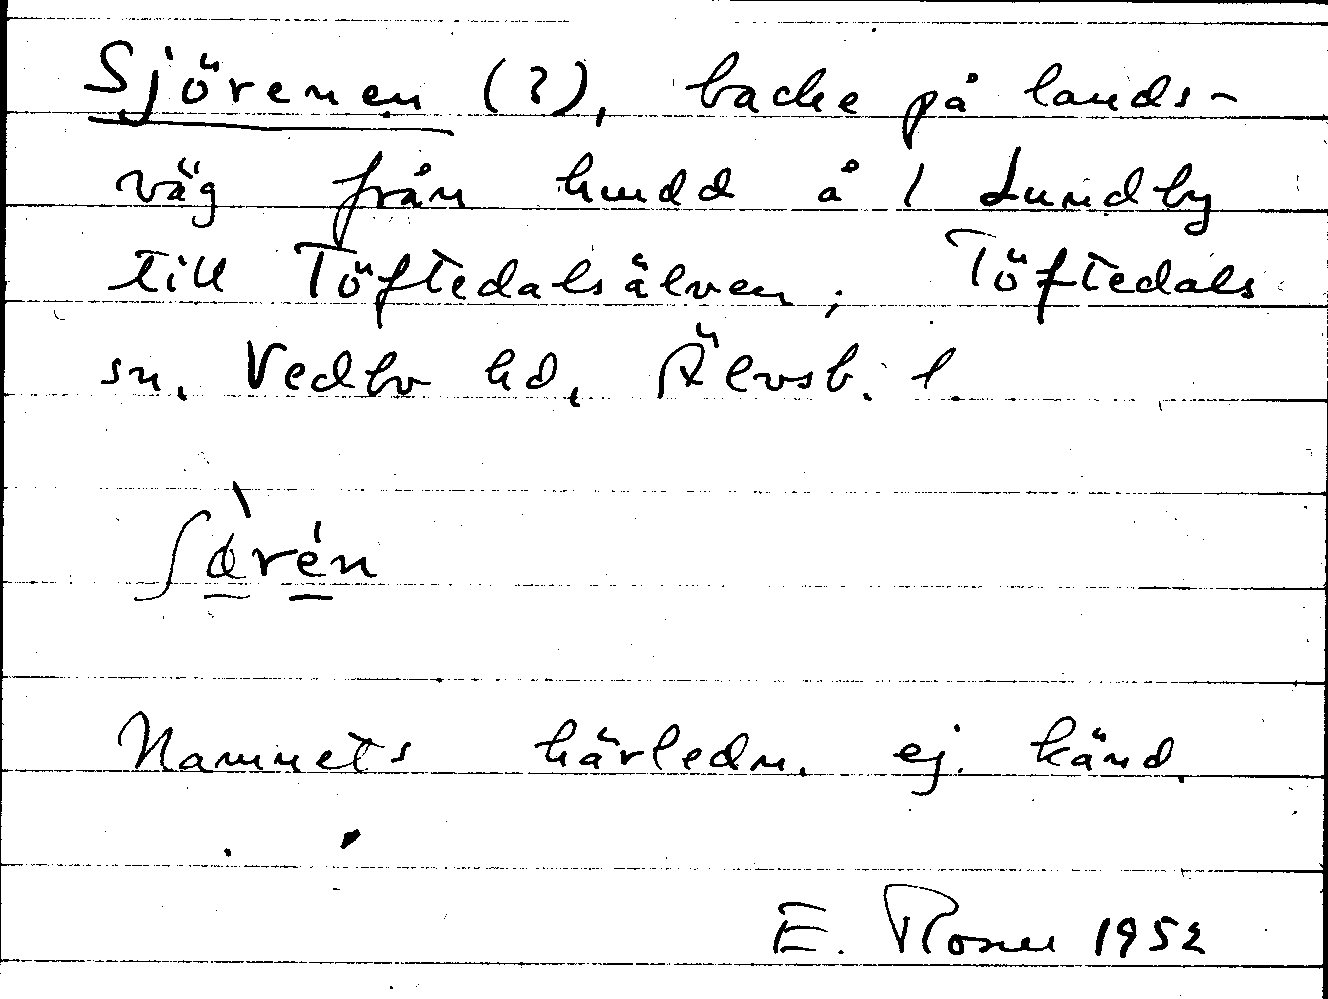 Sjörenen (?), backe på lands-
väg från hmdd å 1 Lundby
till Töftedalsälven, Töftedals
sn, Vedbo hd, Älvsb. l.
Namnets härledn. ej. känd.
E. 1952